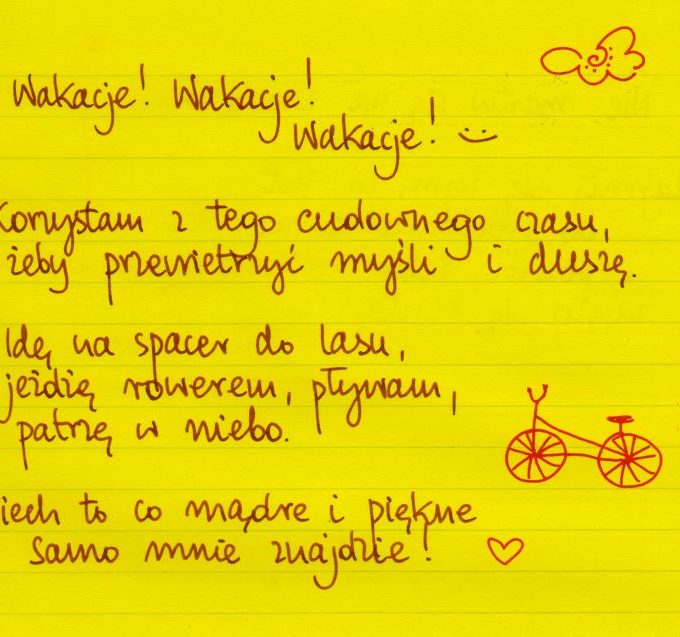 Wakacje! Wakacje!
Wakacje! :)
Korzystam z tego cudownego czasu,
żeby przewietrzyć myśli i duszę.
Idę na spacer do lasu,
jeżdżę rowerem, pływam,
patrzę w niebo.
niech to co mądre i piękne
samo mnie znajdzie!